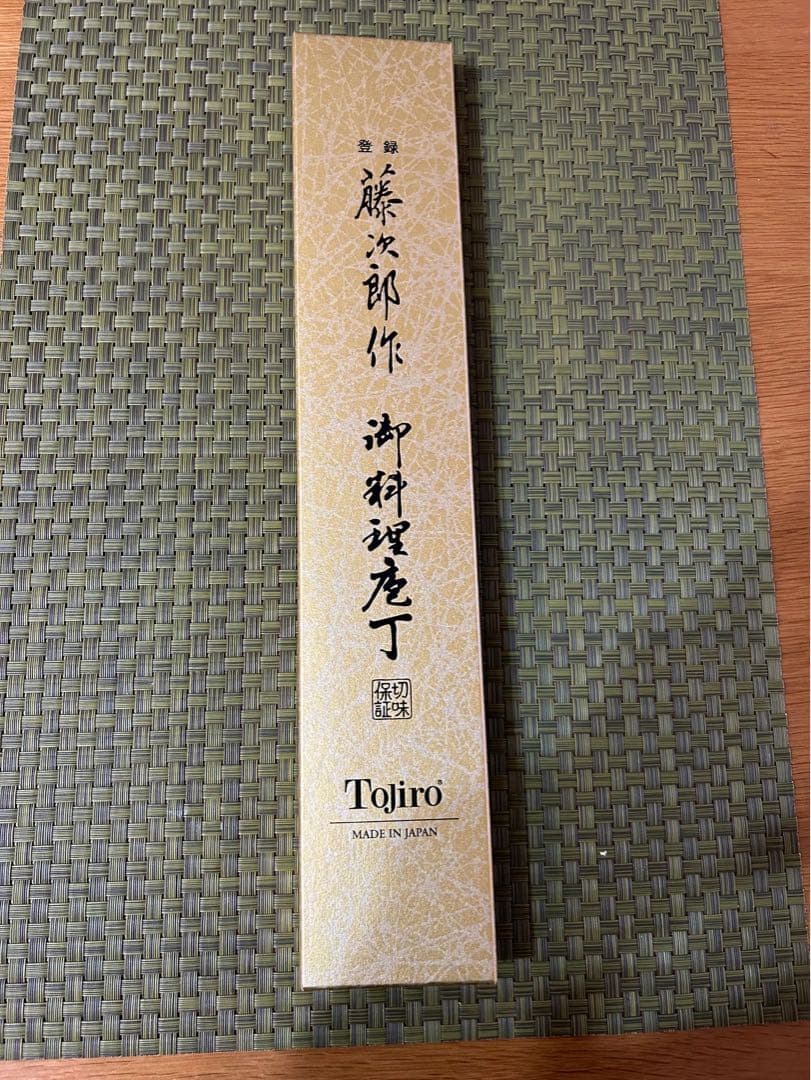 登録
藤次郎作 御料理庖丁
切味
保証
Tojiro®
MADE IN JAPAN